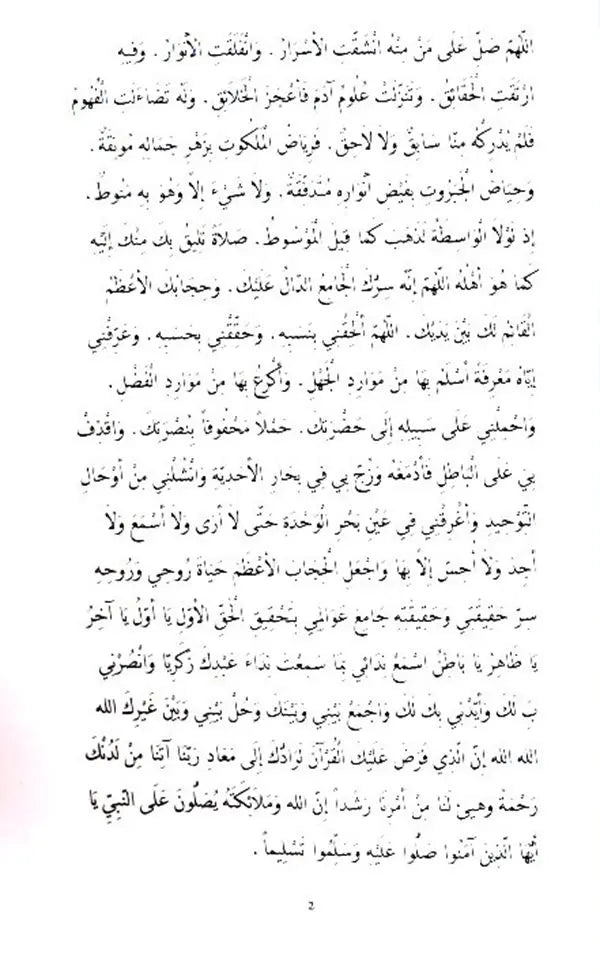 اللّهُمّ صَلّ عَلَى مَنْ مِنْهُ انْشَقّتِ الأسْرَارُ. وَانْفَلَقَتِ الأنْوَارُ. وَفِيهِ
ارْتَقَتِ الْحَقَائِقُ. وَتَنَزّلَتْ عُلُومُ آدَمَ فَأعْجَزَ الْخَلائِقَ. وَلَهُ تَضَاءَلَتِ الْفُهُومُ
فَلَمْ يُدْرِكْهُ مِنّا سَابِقٌ وَلَا لَاحِقٌ. فَرِيَاضُ الْمَلَكُوتِ بِزَهْرِ جَمَالِهِ مُونِقَةٌ.
وَحِيَاضُ الْجَبَرُوتِ بِفَيْضِ أنْوَارِهِ مُتَدَفّقَةٌ. وَلَا شَيْءَ إلاّ وَهُوَ بِهِ مَنُوطٌ.
إذ لَوْلَا الْوَاسِطَةُ لَذَهَبَ كَمَا قِيلَ الْمَوْسُوطُ. صَلَاةً تَلِيقُ بِكَ مِنْكَ إلَيْهِ
كَمَا هُوَ أهْلُهُ اللّهُمّ إنّهُ سِرّكَ الْجَامِعُ الدّالّ عَلَيْكَ. وَحِجَابُكَ الأعْظَمُ
الْقَائِمُ لَكَ بَيْنَ يَدَيْكَ. اللّهُمّ ألْحِقْنِي بِنَسَبِهِ. وَحَقّقْنِي بِحَسَبِهِ. وَعَرّفْنِي
إيّاهُ مَعْرِفَةً أسْلَمُ بِهَا مِنْ مَوَارِدِ الْجَهْلِ. وَأكْرَعُ بِهَا مِنْ مَوَارِدِ الْفَضْلِ.
وَاحْمِلْنِي عَلَى سَبِيلِهِ إلَى حَضْرَتِكَ. حَمْلاً مَحْفُوفاً بِنُصْرَتِكَ. وَاقْذِفْ
بِيَ عَلَى الْبَاطِلِ فَأدْمَغَهُ وَزُجّ بِي فِي بِحَارِ الأحَدِيّةِ وَانْشُلْنِي مِنْ أوْحَالِ
التّوْحِيدِ وَأغْرِقْنِي فِي عَيْنِ بَحْرِ الْوَحْدَةِ حَتّى لا أرَى وَلَا أسْمَعَ وَلَا
أجِدَ وَلَا أحِسّ إلاّ بِهَا وَاجْعَلِ الْحِجَابَ الأعْظَمَ حَيَاةَ رُوحِي وَرُوحِهِ
سِرّ حَقِيقَتِي وَحَقِيقَتِهِ جَامِعَ عَوَالِمِي بِتَحْقِيقِ الْحَقّ الأوّلِ يَا أوّلُ يَا آخِرُ
يَا ظَاهِرُ يَا بَاطِنُ اسْمَعْ نِدَائِي بِمَا سَمِعْتَ نِدَاءَ عَبْدِكَ زَكَرِيّا وَانْصُرْنِي
بِكَ لَكَ وَأيّدْنِي بِكَ لَكَ وَاجْمَعْ بَيْنِي وَبَيْنَكَ وَحُلْ بَيْنِي وَبَيْنَ غَيْرِكَ الله
الله الله إنّ الّذِي فَرَضَ عَلَيْكَ الْقُرْآنَ لَرَادّكَ إلَى مَعَادٍ رَبّنَا آتِنَا مِنْ لَدُنْكَ
رَحْمَةً وَهيئْ لَنَا مِنْ أمْرِنَا رَشَداً إنّ الله وَمَلَائِكَتَهُ يُصَلّونَ عَلَى النّبِيّ يَا
أيّهَا الّذِينَ آمَنُوا صَلّوا عَلَيْهِ وَسَلّمُوا تَسْلِيماً.
2